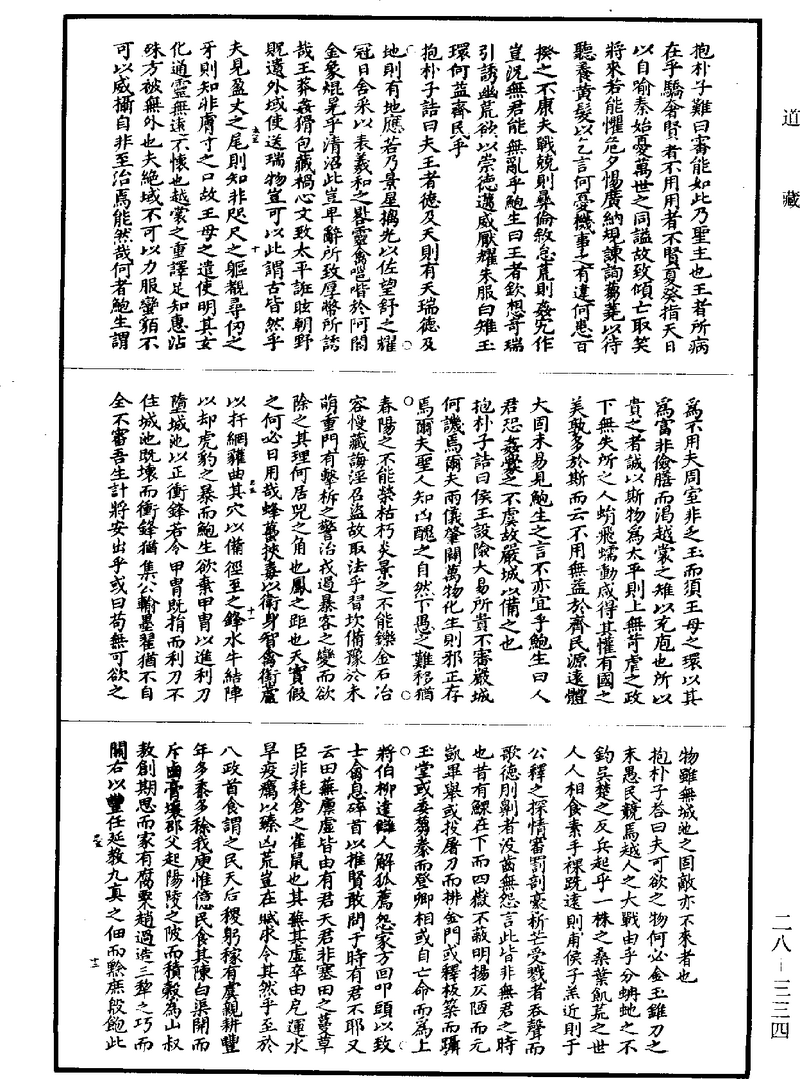 道藏
抱朴子難曰審能如此乃聖主也王者所病
在乎驕奢賢者不用用者不賢夏癸指天日
以自喻秦始憂萬世之同謚故致傾亡取笑
將來若能懼危夕惕廣納規諫詢蒭蕘以待
聽養黃髮以乞言何憂機事之有違何患百
揆之不康夫戰兢則彝倫敘怠荒則姦宄作
豈況無君能無亂乎鮑生曰王者欽想奇瑞
引誘幽荒欲以崇德邁威厭耀未服白雉玉
環何益齊民乎
抱朴子詰曰夫王者德及天則有天瑞德及
地則有地應若乃景星摛光以佐望舒之耀
冠日含采以表羲和之晷靈禽嗈喈於阿閣
金象焜晃乎清沼此豈卑辭所致厚幣所誘
哉王莽姦猾包藏禍心文致太平誑眩朝野
貺遺外域使送瑞物豈可以此謂古皆然乎
夫見盈丈之尾則知非咫尺之軀覩尋仞之
牙則知非膚寸之口故王母之遣使明其玄
化通靈無遠不懷也越裳之重譯足知惠沾
殊方被無外也夫絶域不可以力服蠻貊不
可以威攝自非至治焉能然哉何者鮑生謂
爲不用夫周室非乏玉而須王母之環以其
爲富非儉膳而渴越裳之雉以充庖也所以
貴之者誠以斯物爲太平則上無苛虐之政
下無失所之人蜎飛蠕動咸得其懽有國之
美孰多於斯而云不用無益於齊民源遠體
大固未易見鮑生之言不亦宜乎鮑生曰人
君恐姦釁之不虞故嚴城以備之也
抱朴子詰曰侯王設險大易所貴不審嚴城
何譏焉爾夫兩儀肇闢萬物化生則邪正存
焉爾夫聖人知凶醜之自然下愚之難移猶
春陽之不能榮枯朽炎景之不能鑠金石冶
容慢藏誨淫召盜故取法乎習坎備豫於未
萌重門有擊柝之警治戎遏暴客之變而欲
除之其理何居兕之角也鳳之距也天實假
之何必日用哉蜂蠆挾毒以衛身智禽銜蘆
以扞網獾曲其穴以備徑至之鋒水牛結陣
以却虎豹之暴而鮑生欲棄甲冑以進利刃
墮城池以正衝鋒若令甲冑既捐而利刃不
住城池既壞而衝鋒猶集公輸墨翟猶不自
全不審吾生計將安出乎或曰苟無可欲之
物雖無城池之固敵亦不來者也
抱朴子荅曰夫可欲之物何必金玉錐刀之
末愚民競焉越人之大戰由乎分蚺虵之不
鈞吳楚之反兵起乎一株之桑葉飢荒之世
人人相食素手裸跣遠則甫侯子羔近則于
公釋之探情審罰剖毫析芒受戮者吞聲而
歌德刖劓者没齒無怨言此皆非無君之時
也昔有鰥在下而四嶽不蔽明揚仄陋而元
凱畢舉或投屠刀而排金門或釋板築而躡
玉堂或委蒭豢而登卿相或自亡命而爲上
將伯柳達讎人解狐薦怨家方回叩頭以致
士禽息碎首以推賢敢問于時有君不耶又
云田蕪廩虛皆由有君夫君非塞田之蔓草
臣非耗倉之雀鼠也其蕪其虛卒由戹運水
旱疫癘以臻凶荒豈在賦求令其然乎至於
八政首食謂之民天后稷躬稼有虞親耕豐
年多黍多稌我庾惟億民食其陳白渠開而
斥鹵膏壤邵父起陽陵之陂而積穀爲山叔
敖創期思而家有腐粟趙過造三犂之巧而
關右以豐任延教九真之佃而黔庶殷飽此
二八—三三四